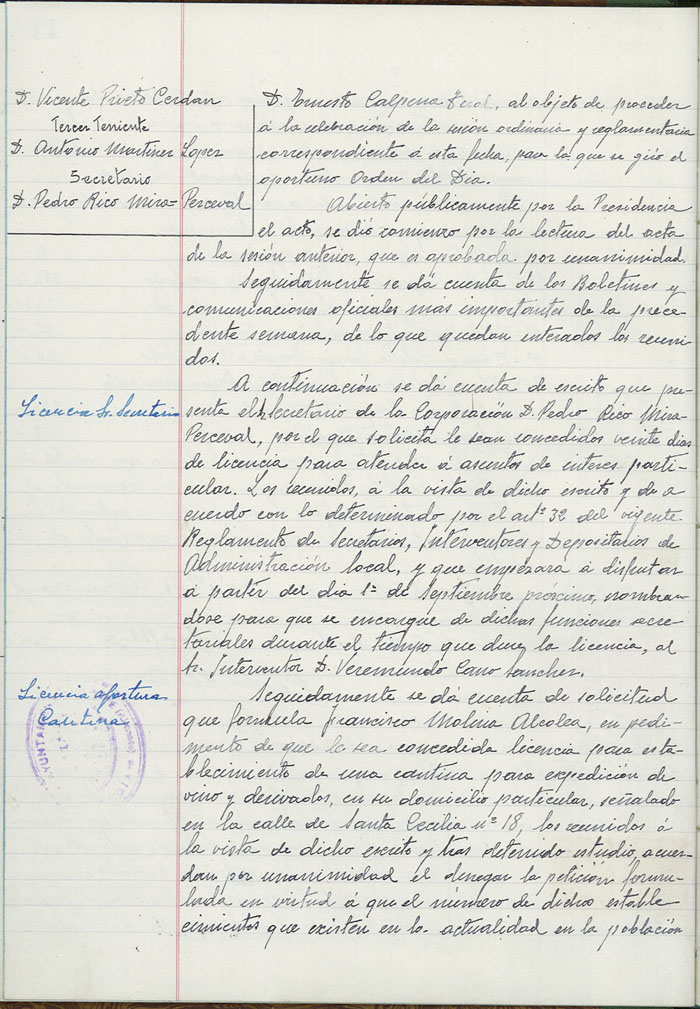 D. Vicente Prieto Cerdan
Tercer Teniente
D. Antonio Martinez Lopez
Secretario
D. Pedro Rico Mira-Perceval
D. Ernesto Calpena, al objeto de proceder
á la celebración de la sesión ordinaria y reglamentaria
correspondiente á esta fecha, para la que se giró el
oportuno Orden del Dia.
Abierto públicamente por la Presidencia
el acto, se dió comienzo por la lectura del acta
de la sesión anterior, que es aprobada por unanimidad.
Seguidamente se dá cuenta de los Boletines y
comunicaciones oficiales más importantes de la prece-
dente semana, de lo que quedan enterados los reuni-
dos.
Licencia Sr. Secretario
A continuación se dá cuenta de escrito que pre-
senta el Sr. Secretario de la Corporación D. Pedro Rico Mira-
Perceval, por el que solicita le sean concedidos veinte dias
de licencia para atender á asuntos de interes parti-
cular. Los reunidos, á la vista de dicho escrito y de a
cuerdo con lo determinado por el artº 32 del vigente
Reglamento de Secretarios, Interventores y Depositarios de
Administración local, y que empezara á disfrutar
á partir del dia 1º de Septiembre próximo, nombran-
dose para que se encargue de dichas funciones secre-
tariales durante el tiempo que dure la licencia, al
Sr. Interventor D. Veremundo Cano Sanchez.
Licencia apertura
Cantina
AYUNTA
Seguidamente se dá cuenta de solicitud
que formula Francisco Molina Alcolea, en pedi-
mento de que le sea concedida licencia para esta-
blecimiento de una cantina para expedición de
vino y derivados, en su domicilio particular, señalado
en la calle de Santa Cecilia nº 18, los reunidos á
la vista de dicho escrito y tras detenido estudio, acuer-
dan por unanimidad el denegar la petición formu-
lada en virtud á que el número de dichos estable
cimientos que existen en la actualidad en la población